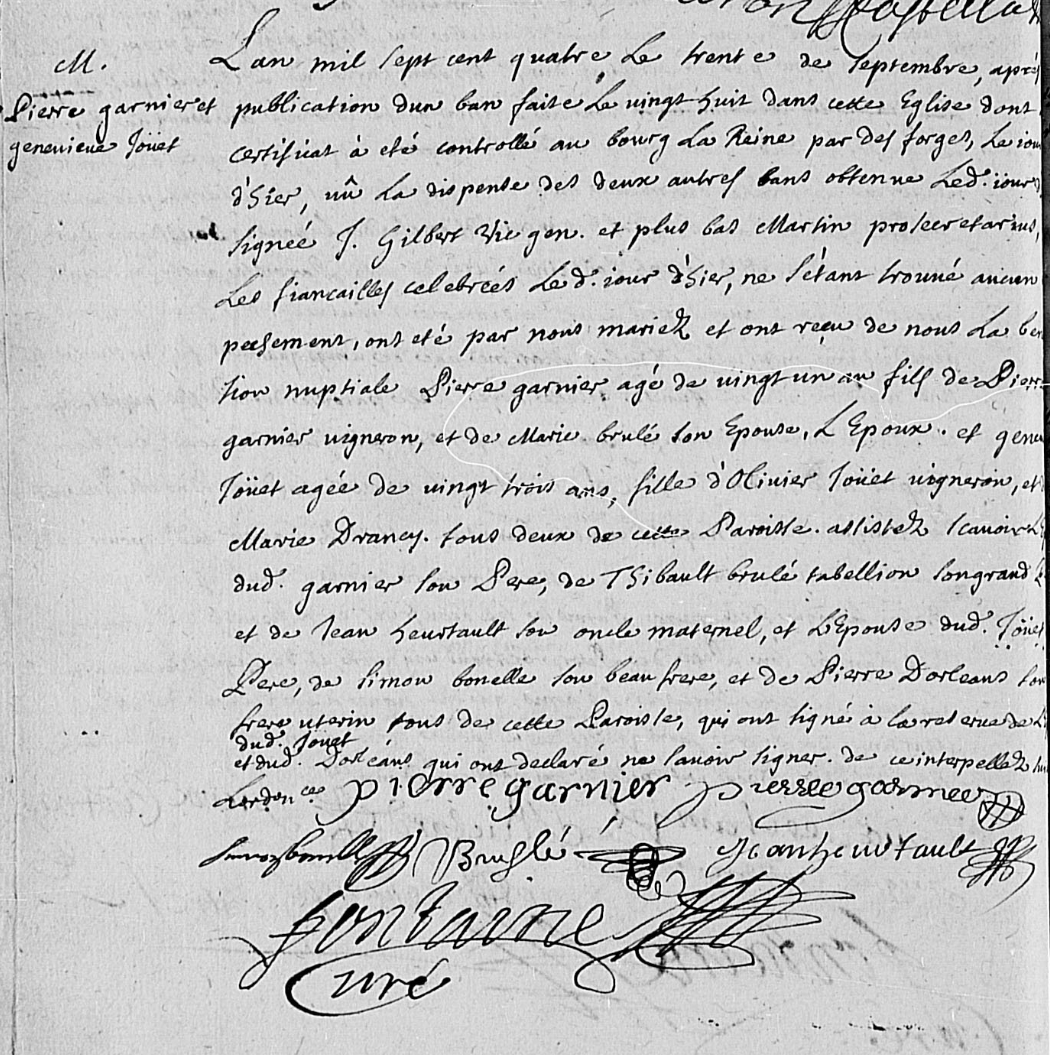 M.
Pierre garnier et
genevieve Joüet
Lan mil sept cent quatre Le trente de septembre, aprés
publication dun ban faite Le vingt huit dans cette Eglise dont
certificat à eté controllé au bourg La Reine par desforges, Le iour
d'hier, vû La dispense des deux autres bans obtenue Led. iour
signeé J. Gilbert Vic gen. et plus bas Martin prosecretarius,
Les fiancailles celebreés Led. iour d'hier, ne s'étant trouvé aucun
peschement, ont eté par nous mariez et ont reçu de nous La ben
tion nuptiale Pierre garnier agé de vingt un an fils de Pierre
garnier vigneron, et de Marie brulé son Epouse, L'Epoux. et genev
Joüet agée de vingt trois ans, fille d'Olivier Joüet vigneron, et
Marie Drancy. tous deux de cette Paroisse. assistez scavoir L
dud. garnier son Pere, de Thibault brulé tabellion son grand
et de Jean heurtault son oncle maternel, et L'Epouse dud. Joüet
Pere, de simon bonelle son beau frere, et de Pierre Dorleans son
frere uterin tous de cette Paroisse, qui ont signé à la reserve de
dud. Joüet
et dud. Dorléans qui ont declaré ne savoir signer. de ce interpellez
Lordon.ce pierre garnier pierre garnier
simon bonelle Bruslé Jean heurtault
fontaine
Curé